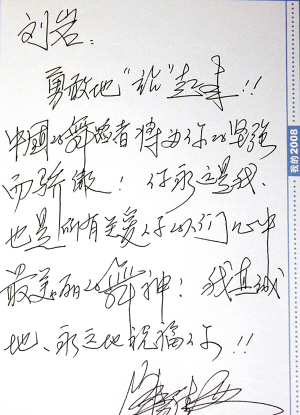 刘岩：
勇敢地“站”起来！！
中國的舞蹈者将为你的坚强
而骄傲！你永远是我、
也是所有关爱你的人们心中
最美丽的舞神！我真诚
地、永远地祝福你！！
我的2008